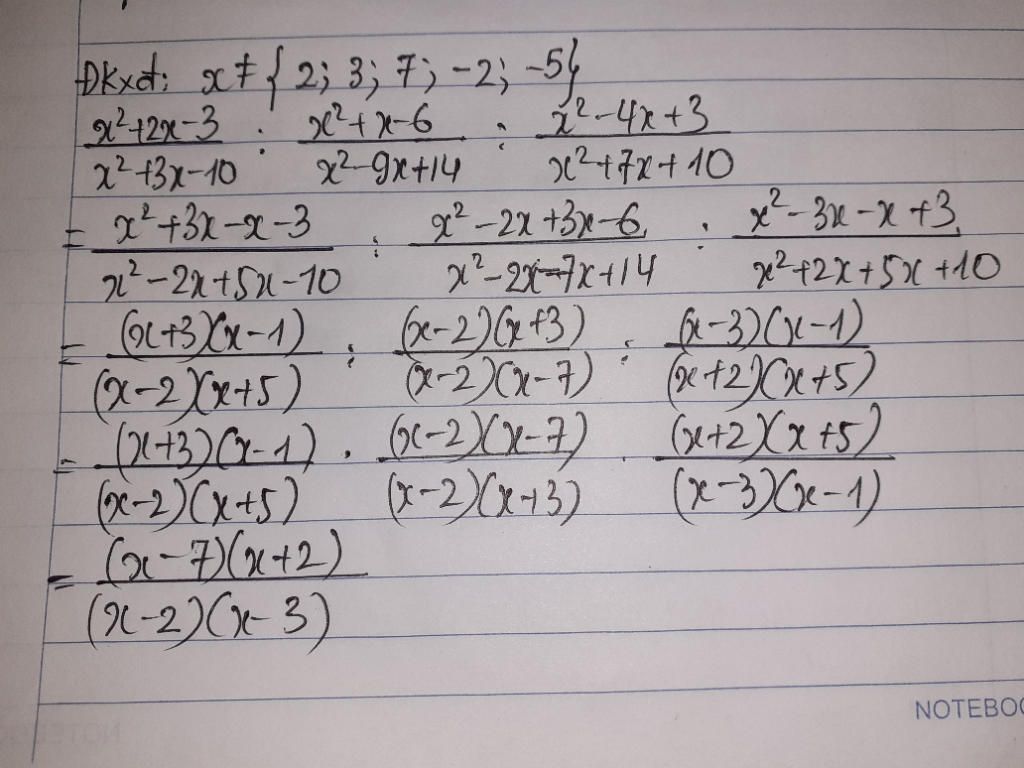 ĐKxđ: x ≠ { 2; 3; 7; -2; -5}
(x²+2x-3)/(x²+3x-10) : (x²+x-6)/(x²-9x+14) : (x²-4x+3)/(x²+7x+10)
= (x²+3x-x-3)/(x²-2x+5x-10) : (x²-2x+3x-6)/(x²-2x-7x+14) : (x²-3x-x+3)/(x²+2x+5x+10)
= ((x+3)(x-1))/((x-2)(x+5)) : ((x-2)(x+3))/((x-2)(x-7)) : ((x-3)(x-1))/((x+2)(x+5))
= ((x+3)(x-1))/((x-2)(x+5)) . ((x-2)(x-7))/((x-2)(x+3)) . ((x+2)(x+5))/((x-3)(x-1))
= ((x-7)(x+2))/((x-2)(x-3))
NOTEBOO